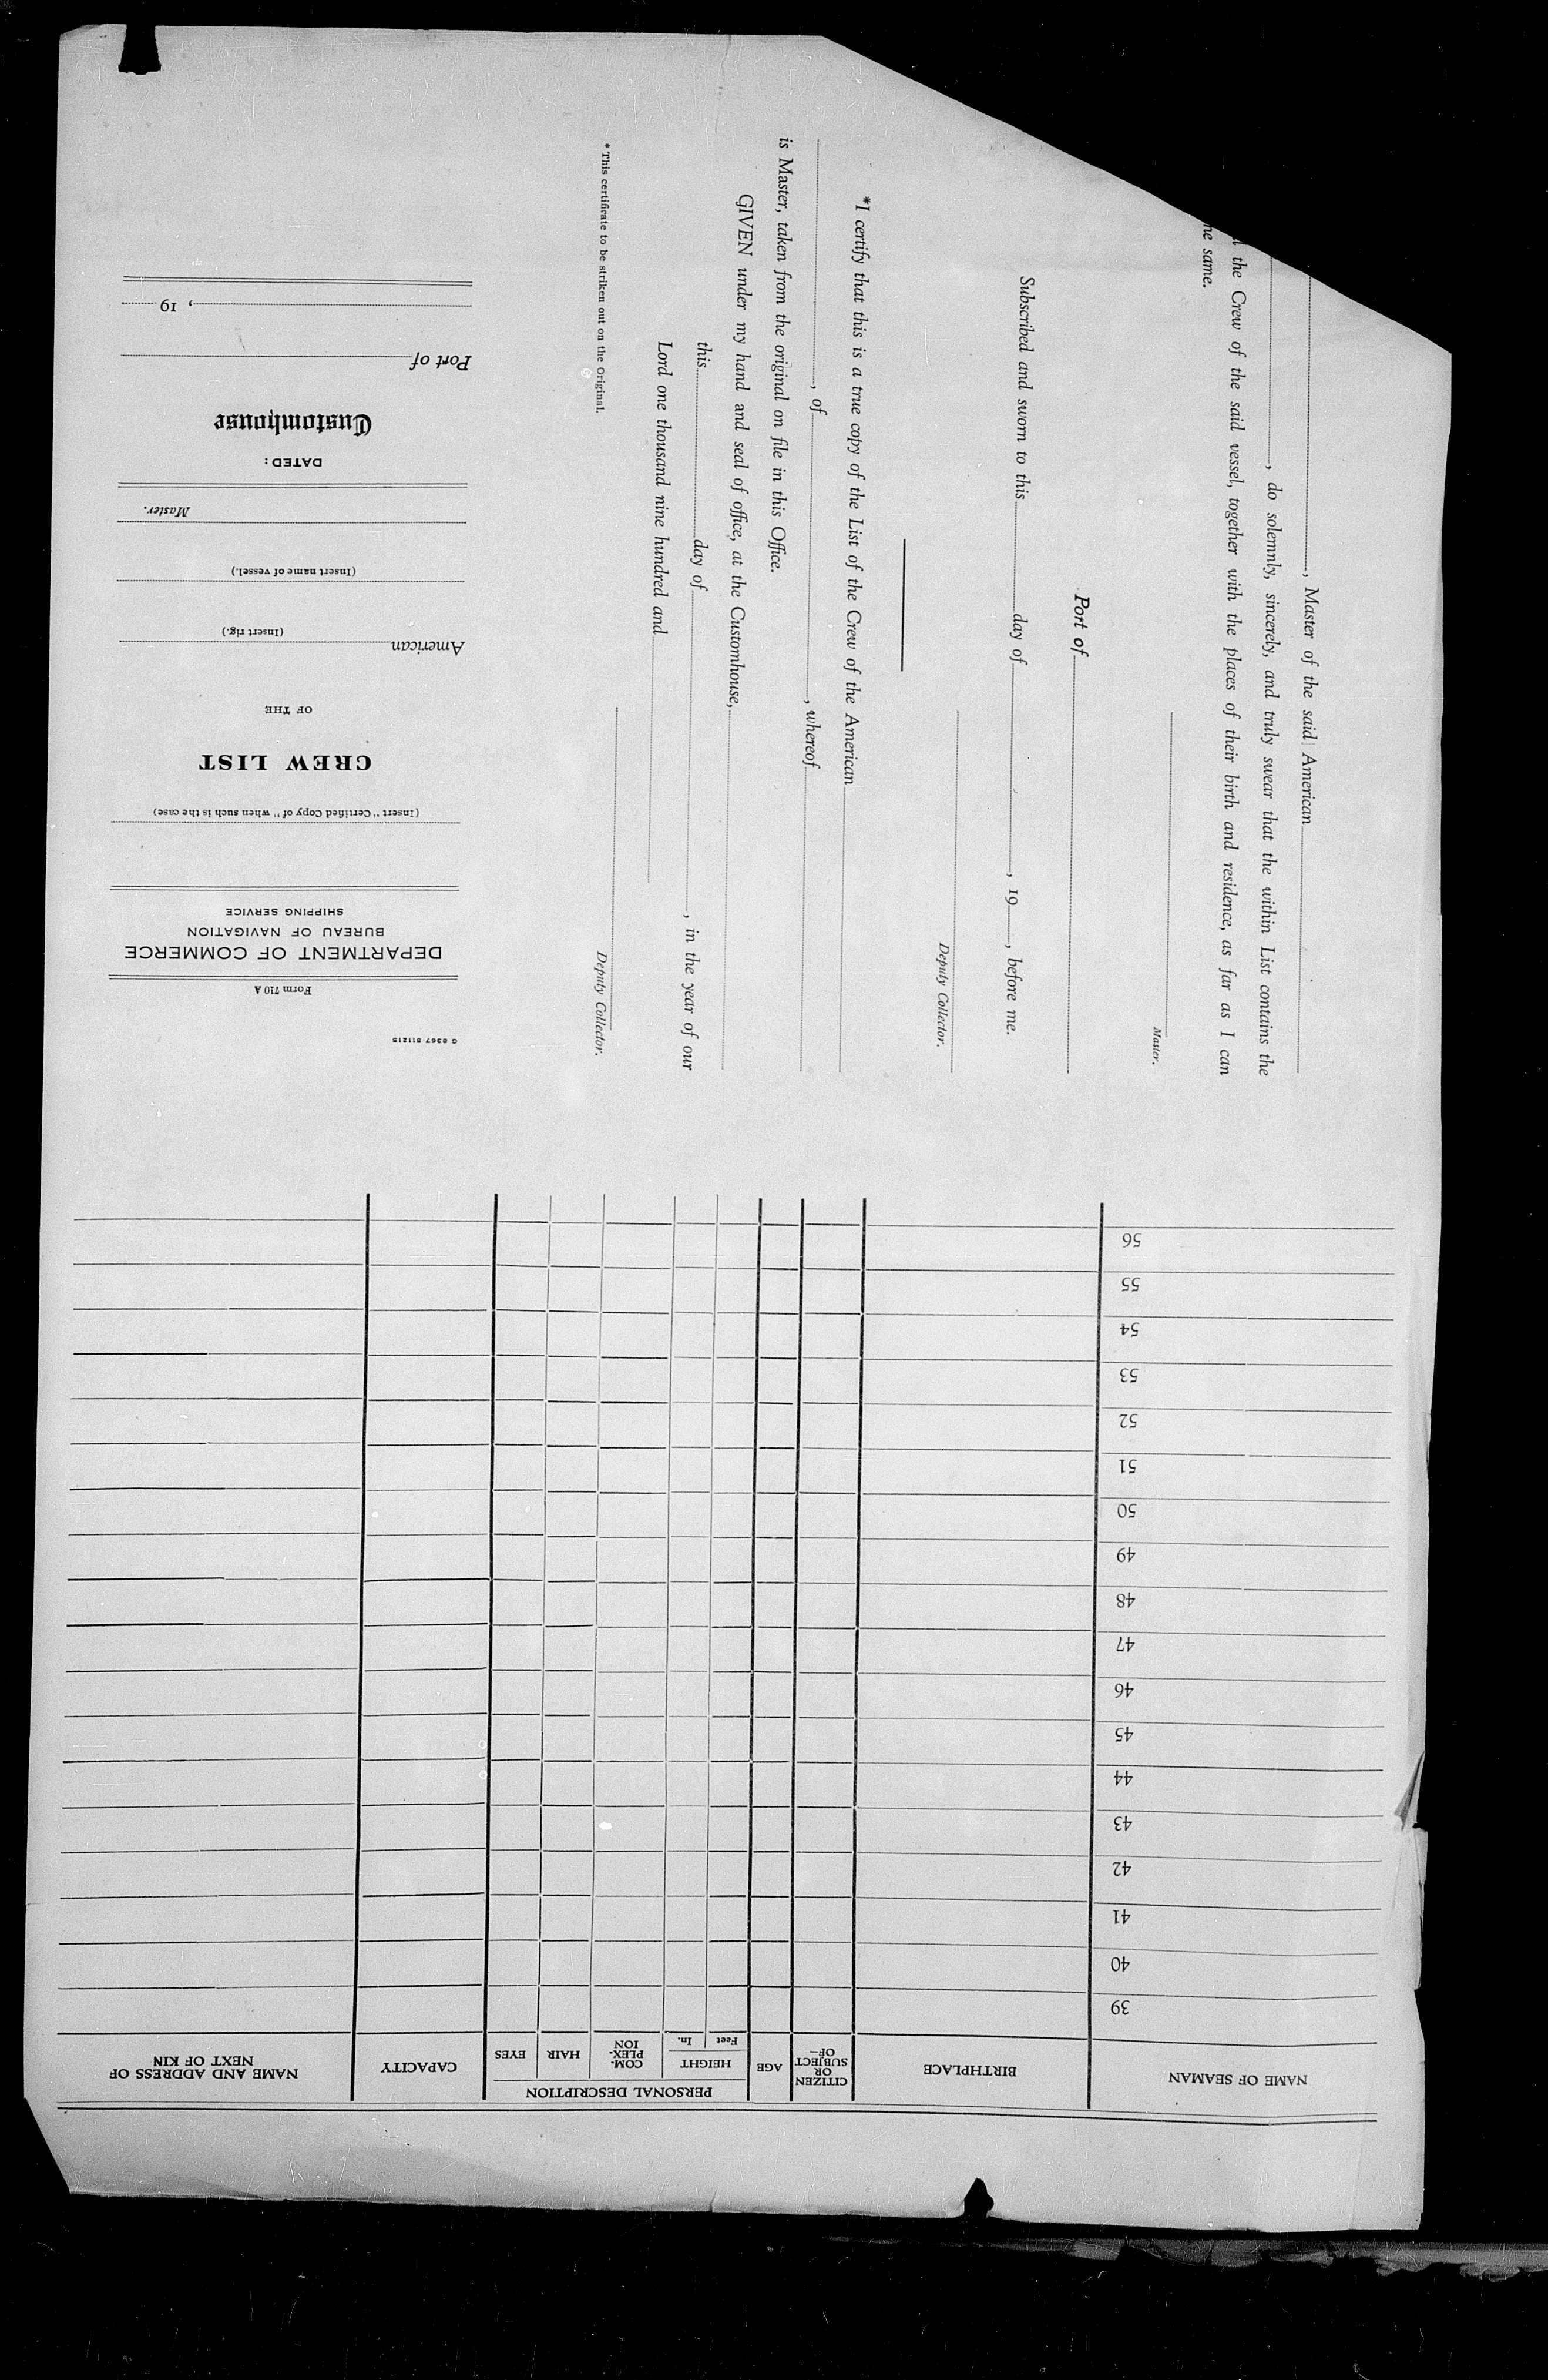 NAME OF SEAMAN
BIRTHPLACE
CITIZEN
OR
SUBJECT
OF—
AGE
PERSONAL DESCRIPTION
HEIGHT
Feet
In.
COM-
PLEX-
ION
HAIR
EYES
CAPACITY
NAME AND ADDRESS OF
NEXT OF KIN
39
40
41
42
43
44
45
46
47
48
49
50
51
52
53
54
55
56
, Master of the said American
, do solemnly, sincerely, and truly swear that the within List contains the
the Crew of the said vessel, together with the places of their birth and residence, as far as I can
same.
Master.
Port of
Subscribed and sworn to this day of , 19 , before me.
Deputy Collector.
*I certify that this is a true copy of the List of the Crew of the American
, of , whereof
is Master, taken from the original on file in this Office.
GIVEN under my hand and seal of office, at the Customhouse,
this day of , in the year of our
Lord one thousand nine hundred and
Deputy Collector.
* This certificate to be striken out on the Original.
G 8367 511215
Form 710 A
DEPARTMENT OF COMMERCE
BUREAU OF NAVIGATION
SHIPPING SERVICE
(Insert "Certified Copy of" when such is the case)
CREW LIST
OF THE
American
(Insert rig.)
(Insert name of vessel.)
Master.
DATED:
Customhouse
Port of
, 19